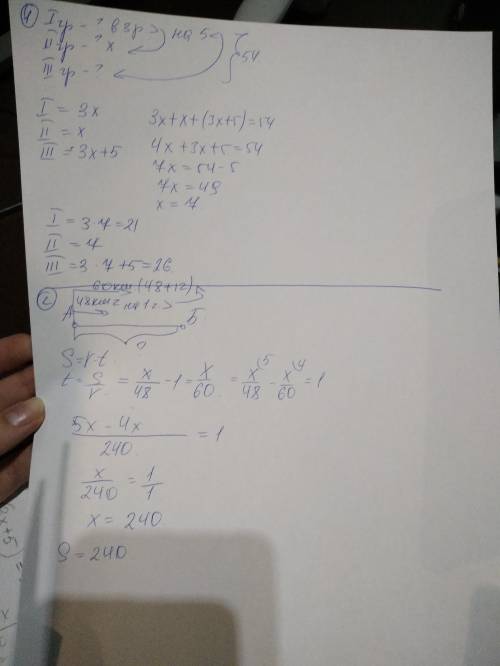 I гр - ? в 3р > на 5
II гр - ? x
III гр - ?
54
I = 3x
II = x
III = 3x+5
3x+x+(3x+5)=54
4x+3x+5=54
7x=54-5
7x=49
x=7
I = 3·7=21
II = 7
III = 3·7+5=26
2
60км (48+12)
48км на 1ч >
A Б
S=v·t
t = S/v = x/48 - 1 = x/60 = x/48 (5 - x/60 (4 = 1
(5x - 4x)/240 = 1
x/240 = 1/1
x = 240
S = 240